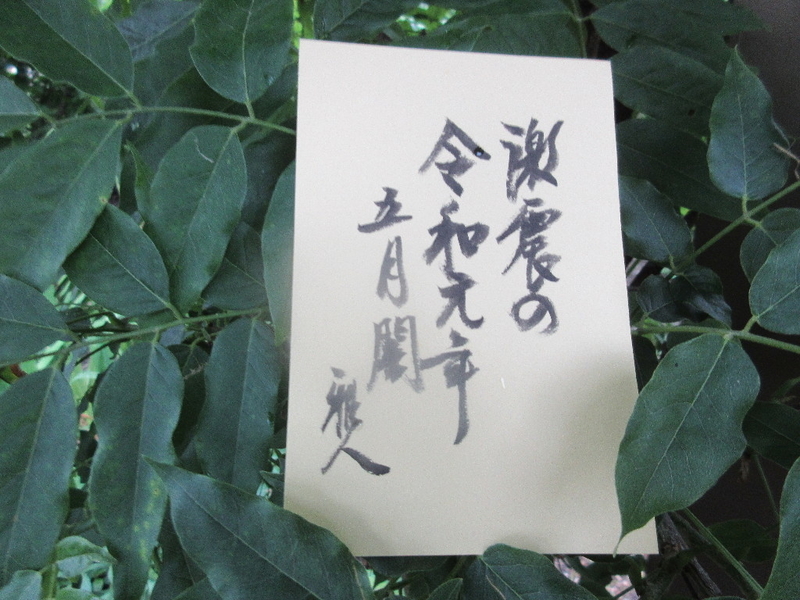 激震の
令和元年
五月闇
雅人